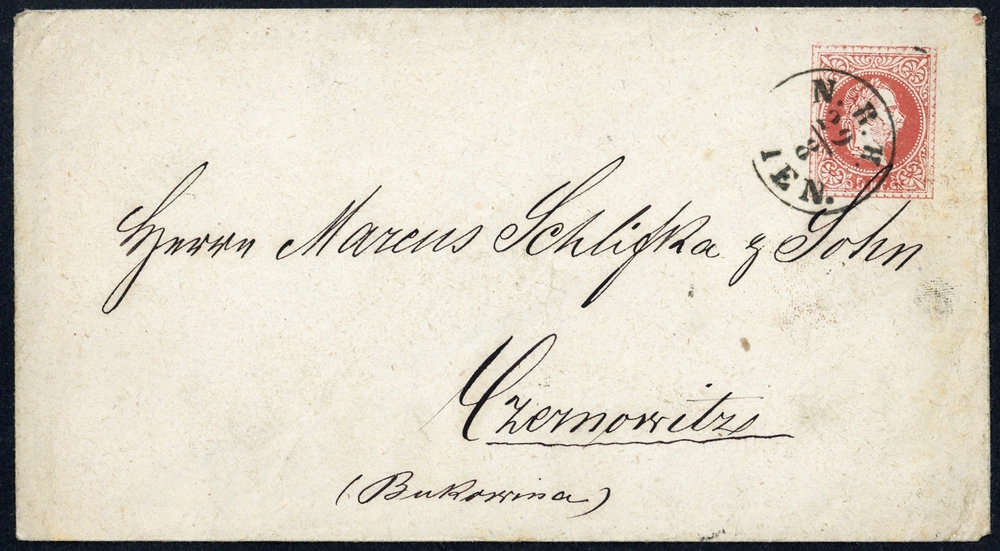 N. B. H.
29
8
IEN.
Herrn Marcus Schlifka & Sohn
Czernowitz
(Bukowina)